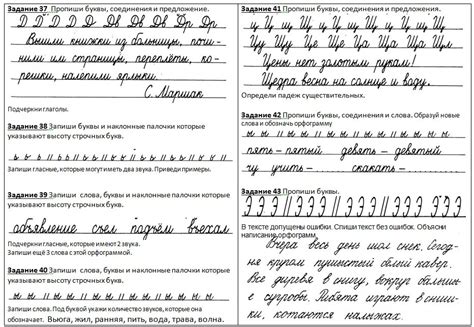 Задание 37 Пропиши буквы, соединения и предложение.
Д Д Д Д Д Дв Дв Дв Др Др
Вышли книжки из больницы, почи-
нили им страницы, переплёты, ко-
решки, налепили ярлыки.
С. Маршак
Подчеркни глаголы.
Задание 38 Запиши буквы и наклонные палочки которые
указывают высоту строчных букв.
Запиши гласные, которые могут иметь два звука. Приведи примеры.
Задание 39 Запиши слова, буквы и наклонные палочки которые
указывают высоту строчных букв.
объявление съел подъём въехал
Подчеркни гласные, которые имеют 2 звука.
Запиши ещё 3 слова с этой орфограммой.
Задание 40 Запиши слова, буквы и наклонные палочки которые
указывают высоту строчных букв.
Запиши слова. Под буквой укажи количество звуков, которые она
обозначает. Вьюга, жил, ранняя, пить, вода, трава, волна.
Задание 41 Пропиши буквы, соединения и предложения.
Ц Щ Ц Щ Ц Щ Ц Щ Ц Щ
Цу Щу Це Ще Ца Ща Цл Щл
Цены нет золотым рукам!
Щедра весна на солнце и воду.
Определи падеж существительных.
Задание 42 Пропиши буквы, соединения и слова. Образуй новые
слова и обозначь орфограмму
пять – пятый девять – девятый
чу учить – скакать –
Задание 43 Пропиши буквы.
ЭЭЭ ЭЭЭ ЭЭЭ ЭЭЭ
В тексте допущены ошибки. Спиши текст без ошибок. Объясни
написание орфограмм.
Вчера весь день шол снек. Сегод-
ня кругом пушыстый белый кавёр.
Все дирвя в снигу, вокруг больши-
е сугробы. Рибята играют в сниш-
ки, котаются налыжах.